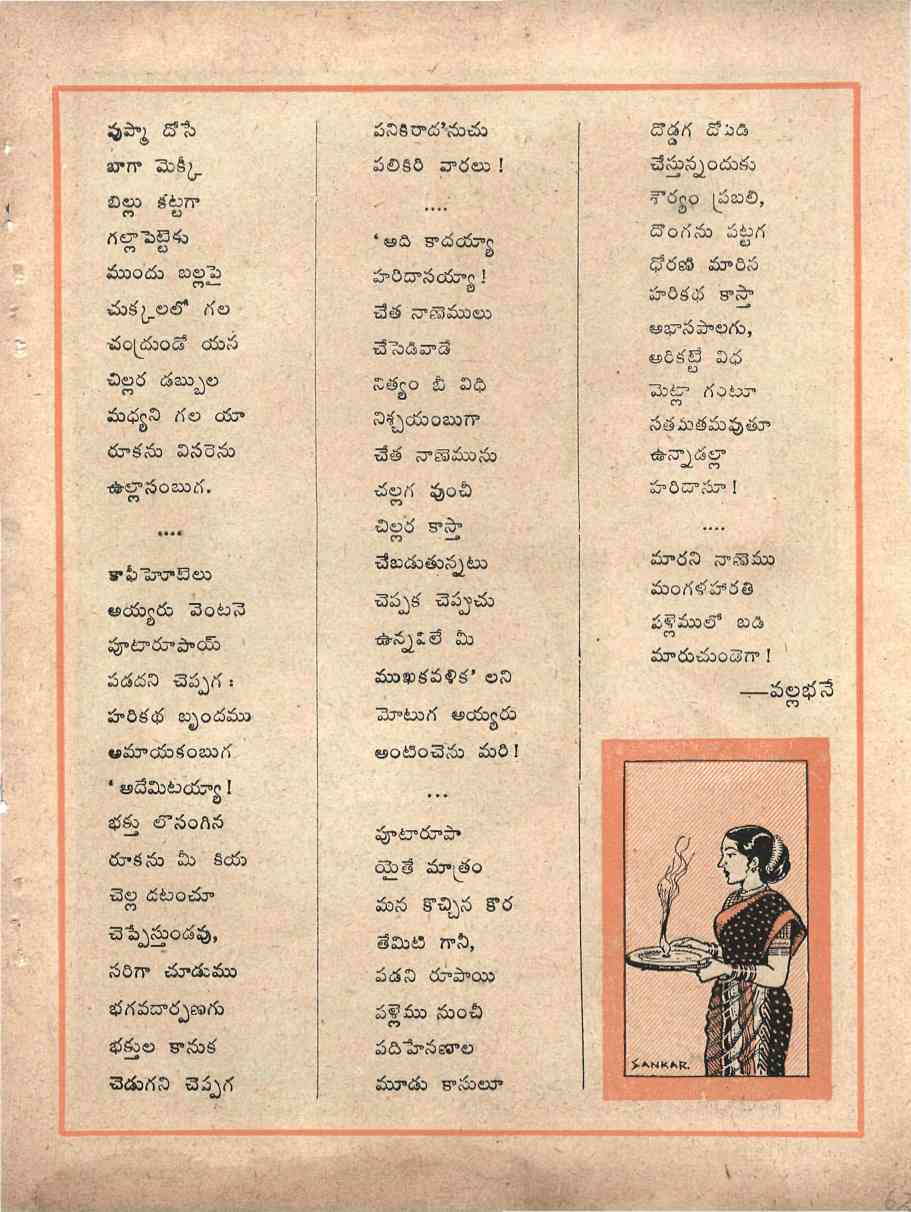 వుప్మా దోసే
బాగా మెక్కీ
బిల్లు కట్టగా
గల్లాపెట్టెకు
ముందు బల్లపై
చుక్కలలో గల
చంద్రుండో యన
చిల్లర డబ్బుల
మధ్యని గల యా
రూకను విసరెను
ఉల్లాసంబుగ.
....
కాఫీహెూటెలు
అయ్యరు వెంటనె
పూటారూపాయ్
పడదని చెప్పగ :
హరికథ బృందము
అమాయకంబుగ
‘ అదేమిటయ్యా !
భక్తు లొసంగిన
రూకను మీ కియ
చెల్ల దటంచూ
చెప్పేస్తుండవు,
సరిగా చూడుము
భగవదార్పణగు
భక్తుల కానుక
చెడుగని చెప్పగ
పనికిరాద’నుచు
పలికిరి వారలు !
....
‘ అది కాదయ్యా
హరిదాసయ్యా !
చేత నాణెములు
చేసెడివాడే
నిత్యం బీ విధి
నిశ్చయంబుగా
చేత నాణెమును
చల్లగ వుంచీ
చిల్లర కాస్తా
చేబడుతున్నటు
చెప్పక చెప్పుచు
ఉన్నవిలే మీ
ముఖకవళిక’ లని
మోటుగ అయ్యరు
అంటించెను మరి !
...
పూటారూపా
యైతే మాత్రం
మన కొచ్చిన కొర
తేమిటి గానీ,
పడని రూపాయి
పళ్లెము నుంచీ
పదిహేనణాల
మూడు కాసులూ
దొడ్డగ దోపిడి
చేస్తున్నందుకు
శౌర్యం ప్రబలి,
దొంగను పట్టగ
ధోరణి మారిన
హరికథ కాస్తా
అభాసపాలగు,
అరికట్టే విధ
మెట్లా గంటూ
సతమతమవుతూ
ఉన్నాడల్లా
హరిదాసూ !
....
మారని నాణెము
మంగళహారతి
పళ్లెములో బడి
మారుచుండెగా !
—వల్లభనే
SANKAR.
62